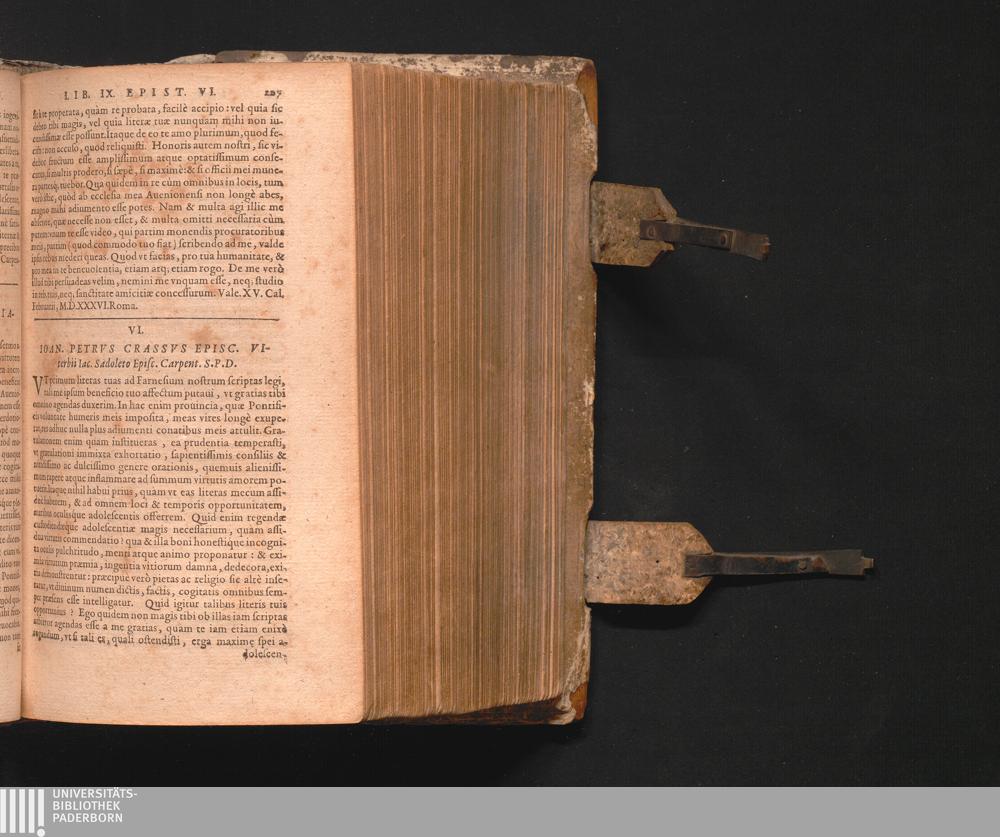 LIB. IX. EPIST. VI. 227
properata, quàm reprobata, facilè accipio: vel quia sic
debeo tibi magis, vel quia literæ tuæ nunquam mihi non iu-
cundissimæ esse possunt. Itaque de eo te amo plurimum, quod fe-
cisti: non accuso, quod reliquisti. Honoris autem nostri, sic vi-
debor fructum esse amplissimum atque optatissimum conse-
cutus, si multis prodero, si sæpè, si maximè: & si officii mei mune-
ra partesq; tuebor. Qua quidem in re cùm omnibus in locis, tum
verò istic, quòd ab ecclesia mea Auenionensi non longè abes,
magno mihi adiumento esse potes. Nam & multa agi illic me
absente, quæ necesse non esset, & multa omitti necessaria cùm
putem: vnum te esse video, qui partim monendis procuratoribus
meis, partim (quod commodo tuo fiat) scribendo ad me, valde
ipsis rebus mederi queas. Quod vt facias, pro tua humanitate, &
pro mea in te beneuolentia, etiam atq; etiam rogo. De me verò
illud tibi persuadeas velim, nemini me vnquam esse, neq; studio
in reb. tuis, neq; sanctitate amicitiæ concessurum. Vale. XV. Cal.
Februarii, M.D.XXXVI. Roma.
VI.
IOAN. PETRVS CRASSVS EPISC. VI-
terbii Iac. Sadoleto Episc. Carpent. S.P.D.
VT primum literas tuas ad Farnesium nostrum scriptas legi,
tali me ipsum beneficio tuo affectum putaui, vt gratias tibi
omnino agendas duxerim. In hac enim prouincia, quæ Pontifi-
cis voluntate humeris meis imposita, meas vires longè exupe-
rat, res adhuc nulla plus adiumenti conatibus meis attulit. Gra-
tulationem enim quam institueras, ea prudentia temperasti,
vt gratulationi immixta exhortatio, sapientissimis consiliis &
ac dulcissimo genere orationis, quemuis alienissi-
mum rapere atque inflammare ad summum virtutis amorem po-
tuerit. Itaque nihil habui prius, quam vt eas literas mecum assi-
duè haberem, & ad omnem loci & temporis opportunitatem,
auribus oculisque adolescentis offerrem. Quid enim regendæ
custodiendæque adolescentiæ magis necessarium, quàm assi-
dua virtutis commendatio? qua & illa boni honestique incogni-
ta oculis pulchritudo, menti atque animo proponatur: & exi-
mia virtutum præmia, ingentia vitiorum damna, dedecora, exi-
tia demonstrentur: præcipuè verò pietas ac religio sic altè inse-
ratur, vt diuinum numen dictis, factis, cogitatis omnibus sem-
per præsens esse intelligatur. Quid igitur talibus literis tuis
opportunius? Ego quidem non magis tibi ob illas iam scriptas
arbitror agendas esse a me gratias, quàm te iam etiam enixè
rogandum, vt si tali es, quali ostendisti, erga maximę spei a-
dolescen-
UNIVERSITÄTS-
BIBLIOTHEK
PADERBORN